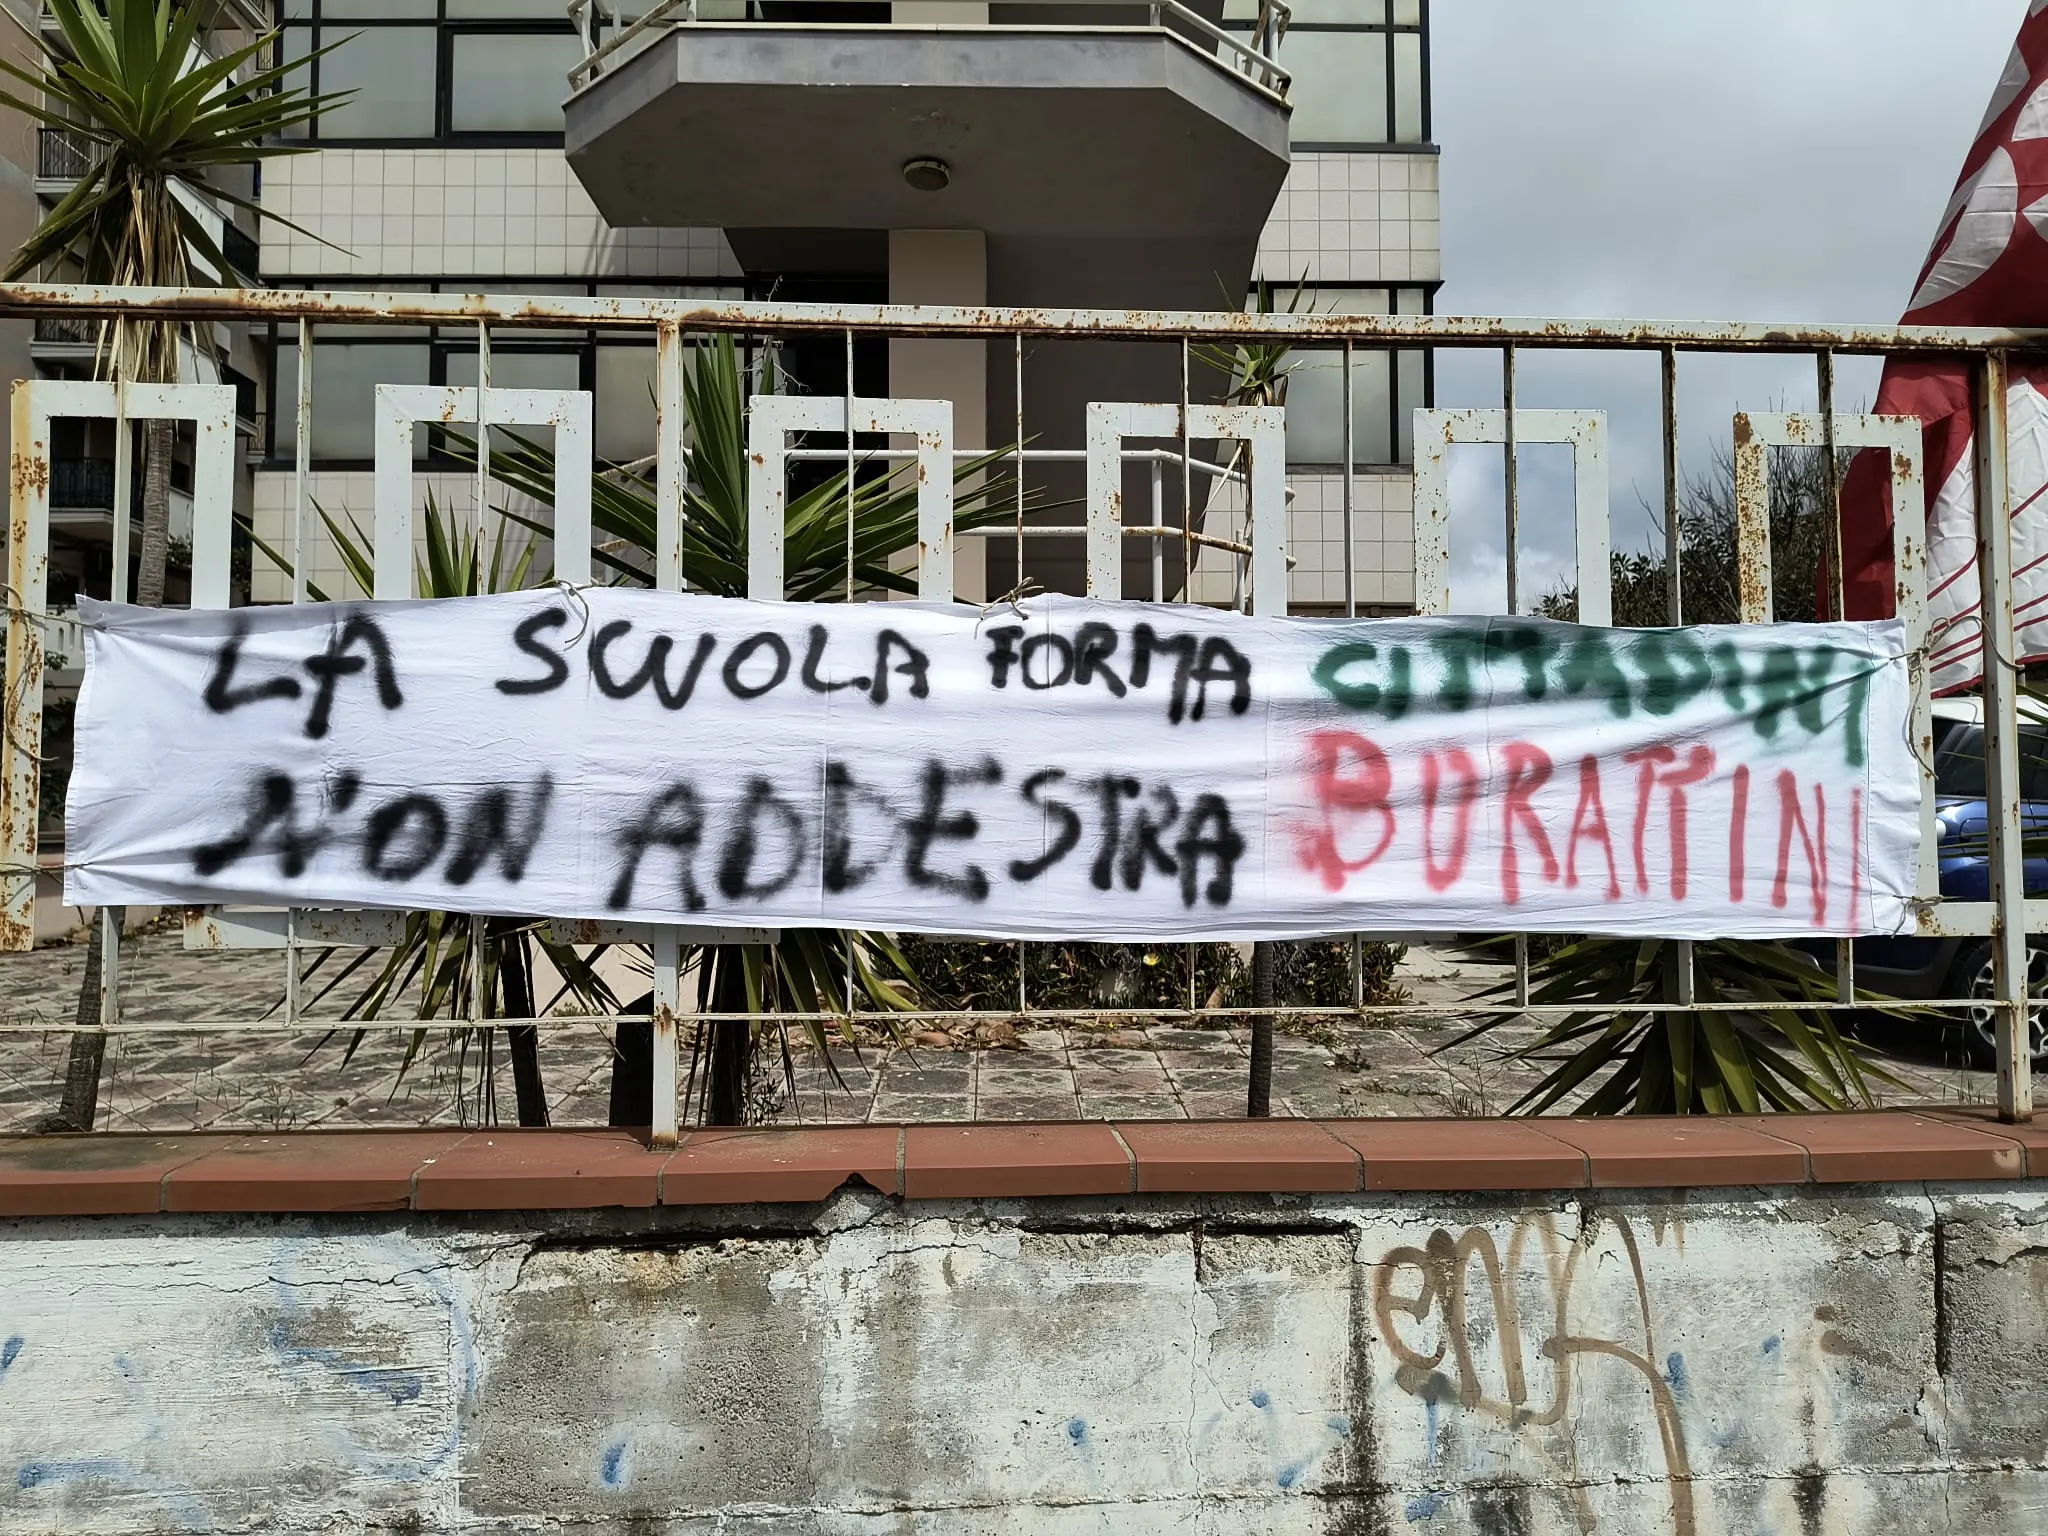 LA SCUOLA FORMA CITTADINI
NON ADDESTRA BURATTINI